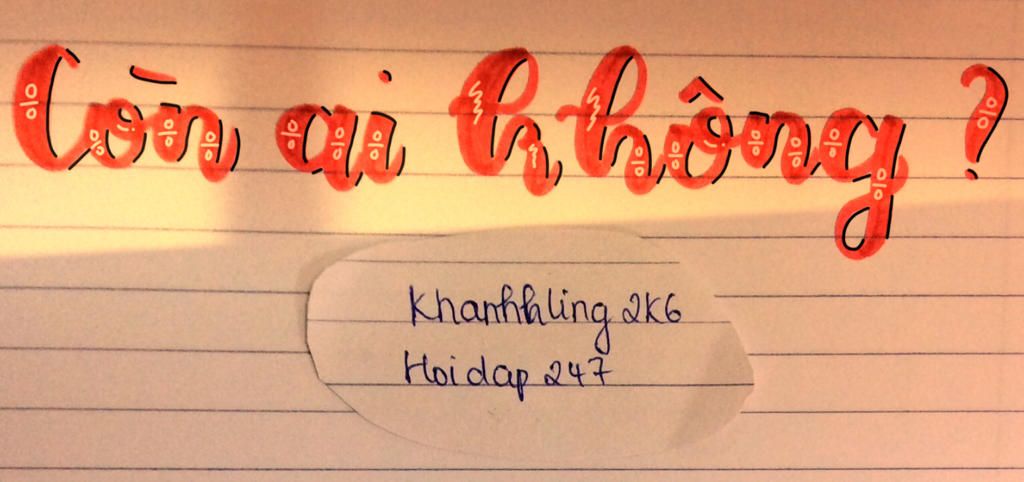 Còn ai không ?
Khanhhling 2K6
Hoidap 247